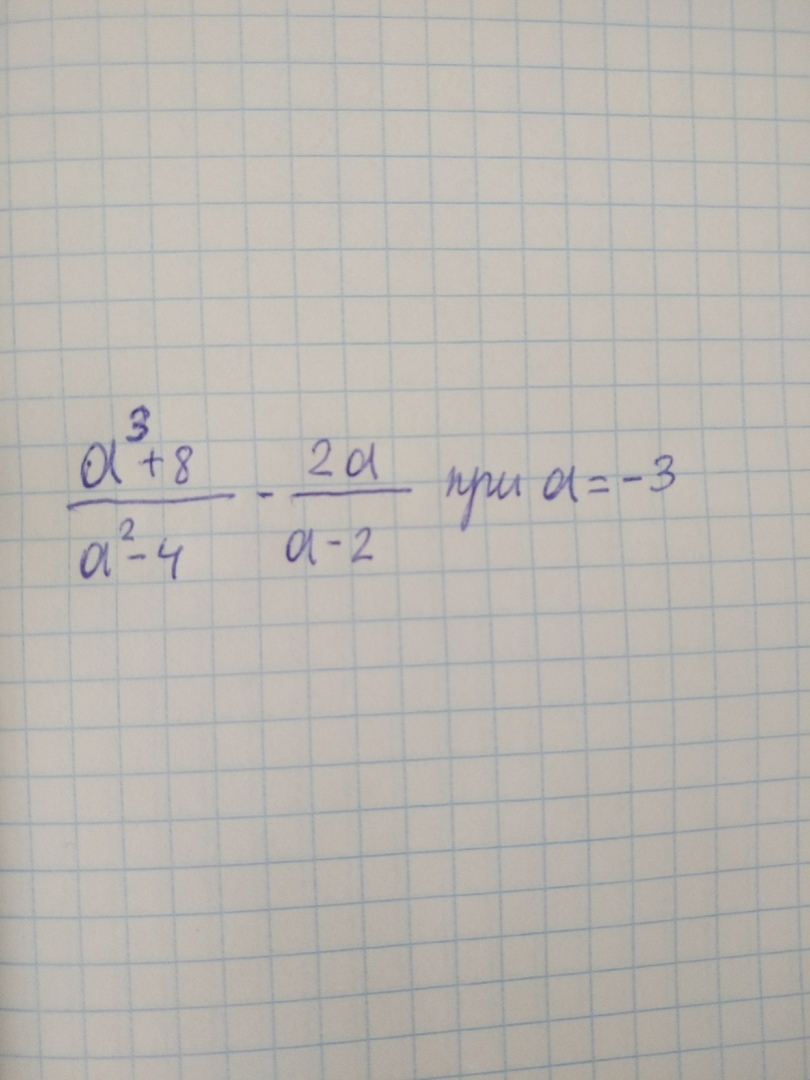 a³+8/a²-4 - 2a/a-2 при a=-3